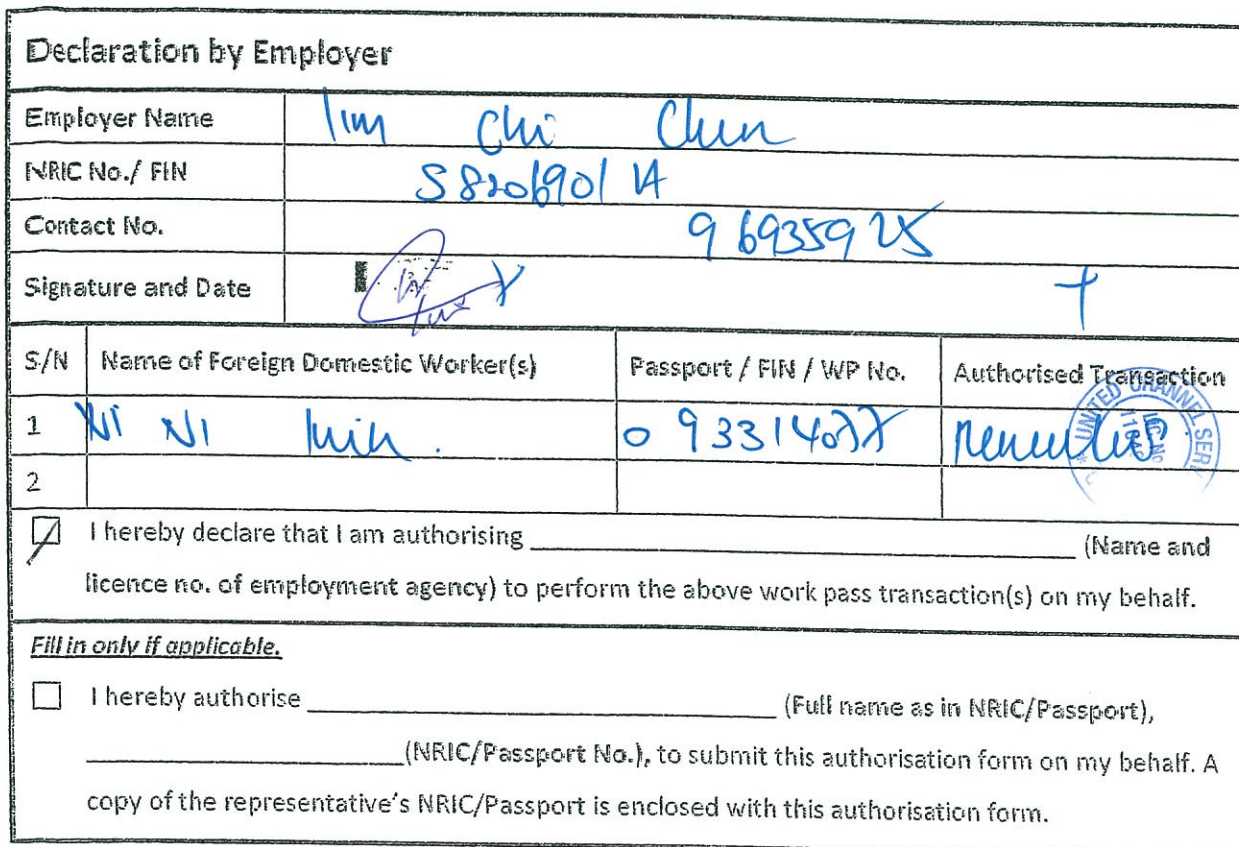 Declaration by Employer
Employer Name lim Chi Chun
NRIC No./ FIN S8206901A
Contact No. 96935925
Signature and Date
S/N Name of Foreign Domestic Worker(s) Passport / FIN / WP No. Authorised Transaction
1 NI NI 0 93314077
UNITED CHANNEL SER
2
I hereby declare that I am authorising (Name and
licence no. of employment agency) to perform the above work pass transaction(s) on my behalf.
Fill in only if applicable.
I hereby authorise (Full name as in NRIC/Passport),
(NRIC/Passport No.), to submit this authorisation form on my behalf. A
copy of the representative's NRIC/Passport is enclosed with this authorisation form.